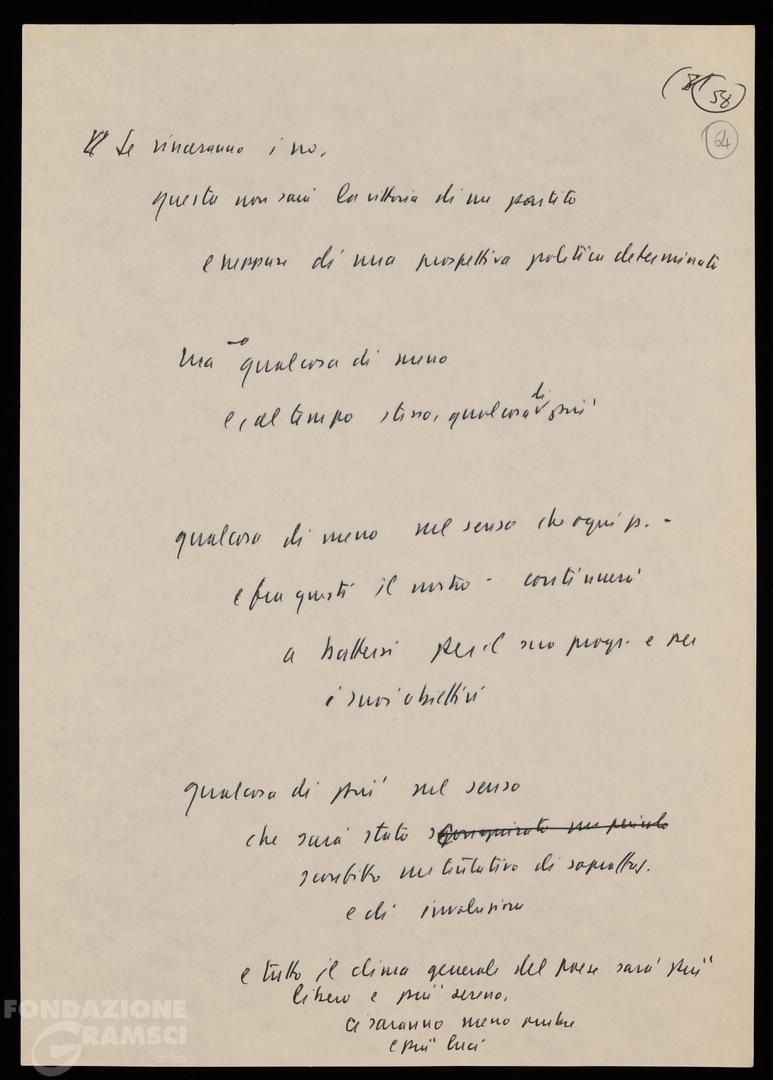 (8)
58
64
Se vinceranno i no,
questa non sarà la vittoria di un partito
e neppure di una prospettiva politica determinata
ma qualcosa di meno
e, al tempo stesso, qualcosa di più
qualcosa di meno nel senso che ogni p. -
e fra questi il nostro - continuerà
a battersi per il suo progr. e per
i suoi obiettivi
qualcosa di più nel senso
che sarà stato scongiurato un pericolo
sconfitto un tentativo di sopraffaz.
e di involuzione
e tutto il clima generale del Paese sarà più
libero e più sereno,
ci saranno meno ombre
e più luci
FONDAZIONE
GRAMSCI
onlus